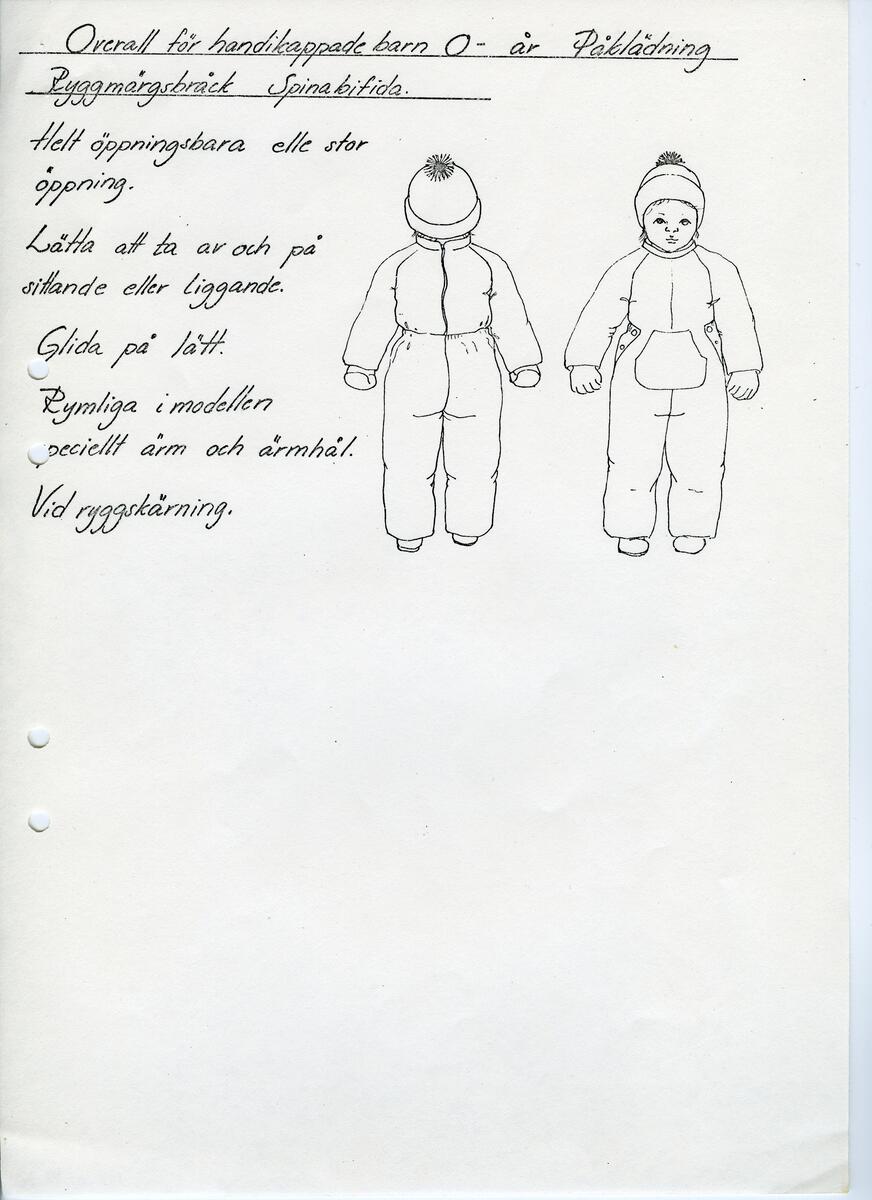 Overall för handikappade barn 0- år Påklädning
Ryggmärgsbråck Spinabifida.
Helt öppningsbara elle stor
öppning.
Lätta att ta av och på
sittande eller liggande.
Glida på lätt.
Rymliga i modellen
speciellt ärm och ärmhål.
Vid ryggskärning.